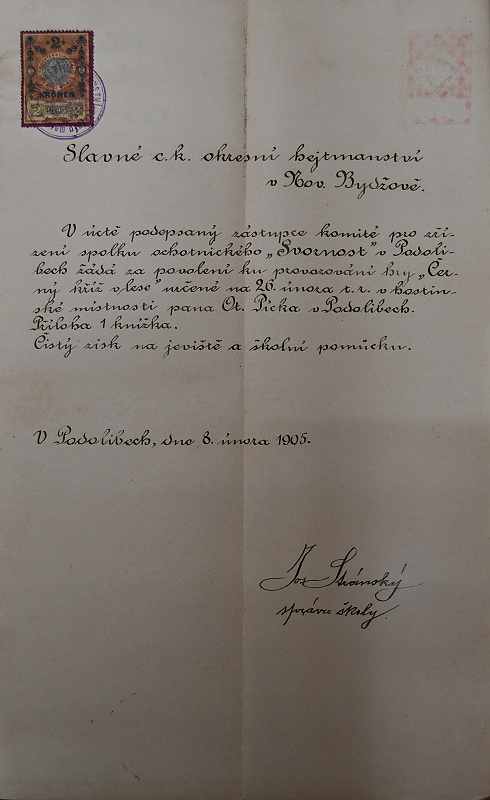 2
KRONEN
2 2
Slavné c.k. okresní hejtmanství
v Nov. Bydžově.
V úctě podepsaný zástupce komité pro zří-
zení spolku ochotnického „Svornost" v Podoli-
bech žádá za povolení ku provozování hry „Čer-
ný kříž v lese" určené na 26. února t. r. v hostin-
ské místnosti pana Ot. Picka v Podolibech.
Příloha 1 knížka.
Čistý zisk na jeviště a školní pomůcku.
V Podolibech, dne 8. února 1905.
Jos Stránský
správce školy.